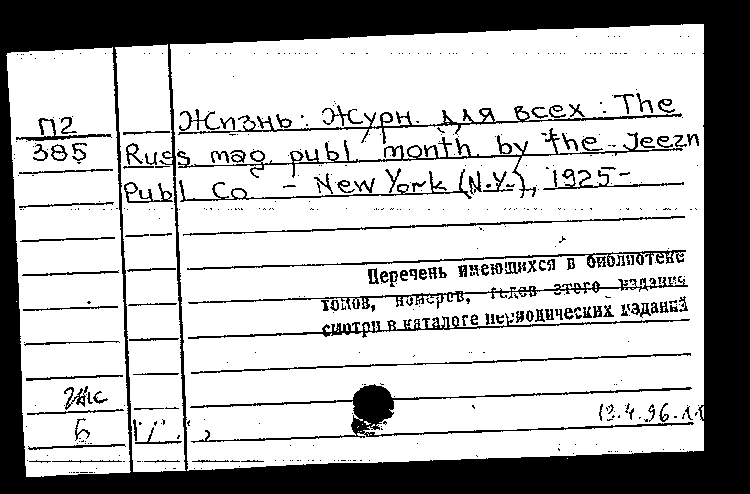 П2
385
Жизнь: Журн. для всех: The
Russ mag. publ. month. by the Jeezn
Publ Co - New York (N.Y.), 1925-
Перечень имеющихся в библиотеке
томов, номеров, годов этого издания
смотри в каталоге периодических изданий
Б